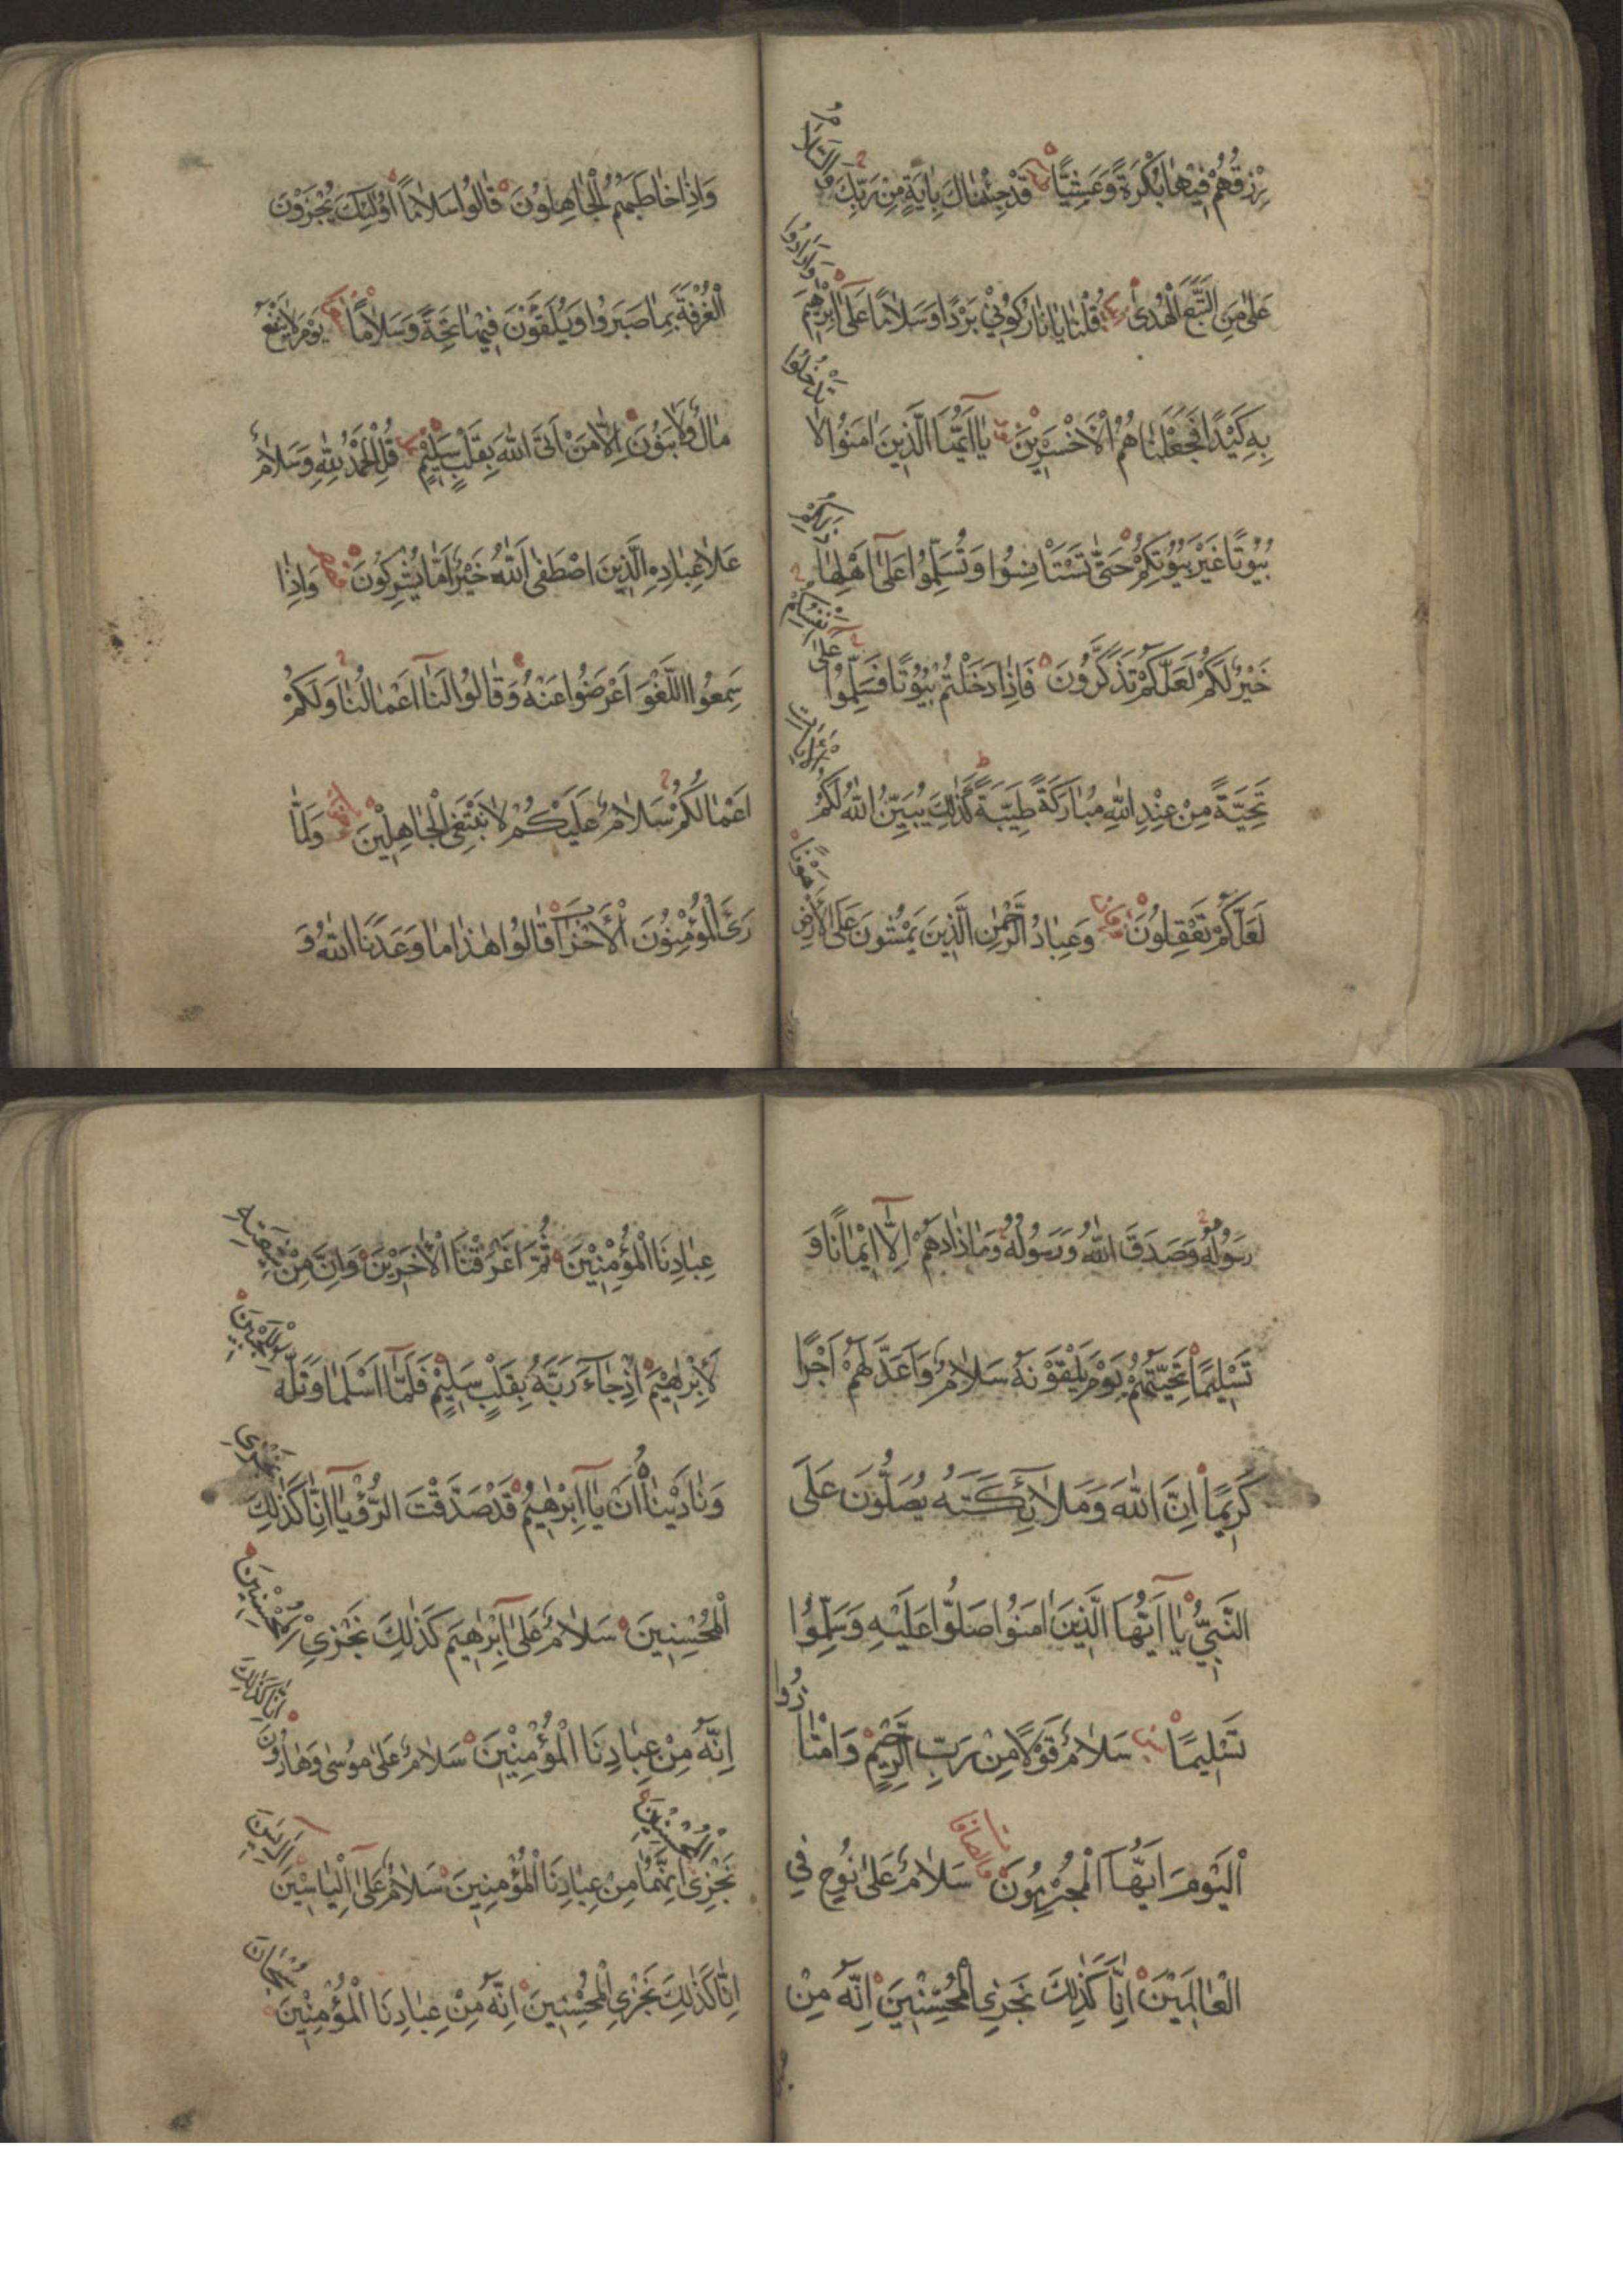 رِزْقُهُمْ فِيهَا بُكْرَةً وَعَشِيًّا قَدْ جِئْنَاكَ بِاٰيَةٍ مِنْ رَبِّكَ وَالسَّلَامُ
عَلٰى مَنِ اتَّبَعَ الْهُدٰى قُلْنَا يَا نَارُ كُونِي بَرْدًا وَسَلَامًا عَلٰى اِبْرٰهِيمَ وَاَرَادُوا
بِهِ كَيْدًا فَجَعَلْنَاهُمُ الْاَخْسَرِينَ يَا اَيُّهَا الَّذِينَ اٰمَنُوا لَا تَدْخُلُوا
بُيُوتًا غَيْرَ بُيُوتِكُمْ حَتّٰى تَسْتَاْنِسُوا وَتُسَلِّمُوا عَلٰى اَهْلِهَا ذٰلِكُمْ
خَيْرٌ لَكُمْ لَعَلَّكُمْ تَذَكَّرُونَ فَاِذَا دَخَلْتُمْ بُيُوتًا فَسَلِّمُوا عَلٰى اَنْفُسِكُمْ
تَحِيَّةً مِنْ عِنْدِ اللّٰهِ مُبَارَكَةً طَيِّبَةً كَذٰلِكَ يُبَيِّنُ اللّٰهُ لَكُمُ الْاٰيَاتِ
لَعَلَّكُمْ تَعْقِلُونَ وَعِبَادُ الرَّحْمٰنِ الَّذِينَ يَمْشُونَ عَلَى الْاَرْضِ هَوْنًا
وَاِذَا خَاطَبَهُمُ الْجَاهِلُونَ قَالُوا سَلَامًا اُولٰئِكَ يُجْزَوْنَ
الْغُرْفَةَ بِمَا صَبَرُوا وَيُلَقَّوْنَ فِيهَا تَحِيَّةً وَسَلَامًا يَوْمَ لَا يَنْفَعُ
مَالٌ وَلَا بَنُونَ اِلَّا مَنْ اَتَى اللّٰهَ بِقَلْبٍ سَلِيمٍ قُلِ الْحَمْدُ لِلّٰهِ وَسَلَامٌ
عَلَا عِبَادِهِ الَّذِينَ اصْطَفٰى اٰللّٰهُ خَيْرٌ اَمَّا يُشْرِكُونَ وَاِذَا
سَمِعُوا اللَّغْوَ اَعْرَضُوا عَنْهُ وَقَالُوا لَنَا اَعْمَالُنَا وَلَكُمْ
اَعْمَالُكُمْ سَلَامٌ عَلَيْكُمْ لَا نَبْتَغِي الْجَاهِلِينَ وَلَمَّا
رَئَ الْمُؤْمِنُونَ الْاَحْزَابَ قَالُوا هٰذَا مَا وَعَدَنَا اللّٰهُ وَ
رَسُولُهُ وَصَدَقَ اللّٰهُ وَرَسُولُهُ وَمَا زَادَهُمْ اِلَّا اِيمَانًا وَ
تَسْلِيمًا تَحِيَّتُهُمْ يَوْمَ يَلْقَوْنَهُ سَلَامٌ وَاَعَدَّ لَهُمْ اَجْرًا
كَرِيمًا اِنَّ اللّٰهَ وَمَلَائِكَتَهُ يُصَلُّونَ عَلَى
النَّبِيِّ يَا اَيُّهَا الَّذِينَ اٰمَنُوا صَلُّوا عَلَيْهِ وَسَلِّمُوا
تَسْلِيمًا سَلَامٌ قَوْلًا مِنْ رَبٍّ رَحِيمٍ وَامْتَازُوا
الْيَوْمَ اَيُّهَا الْمُجْرِمُونَ سَلَامٌ عَلٰى نُوحٍ فِي
الْعَالَمِينَ اِنَّا كَذٰلِكَ نَجْزِي الْمُحْسِنِينَ اِنَّهُ مِنْ
عِبَادِنَا الْمُؤْمِنِينَ ثُمَّ اَغْرَقْنَا الْاٰخَرِينَ وَاِنَّ مِنْ شِيعَتِهِ
لَاِبْرٰهِيمَ اِذْ جَاءَ رَبَّهُ بِقَلْبٍ سَلِيمٍ فَلَمَّا اَسْلَمَا وَتَلَّهُ لِلْجَبِينِ
وَنَادَيْنَاهُ اَنْ يَا اِبْرٰهِيمُ قَدْ صَدَّقْتَ الرُّؤْيَا اِنَّا كَذٰلِكَ نَجْزِي
الْمُحْسِنِينَ سَلَامٌ عَلٰى اِبْرٰهِيمَ كَذٰلِكَ نَجْزِي الْمُحْسِنِينَ
اِنَّهُ مِنْ عِبَادِنَا الْمُؤْمِنِينَ سَلَامٌ عَلٰى مُوسٰى وَهَارُونَ اِنَّا كَذٰلِكَ
نَجْزِي الْمُحْسِنِينَ اِنَّهُمَا مِنْ عِبَادِنَا الْمُؤْمِنِينَ سَلَامٌ عَلٰى اِلْيَاسِينَ
اِنَّا كَذٰلِكَ نَجْزِي الْمُحْسِنِينَ اِنَّهُ مِنْ عِبَادِنَا الْمُؤْمِنِينَ سُبْحَانَ